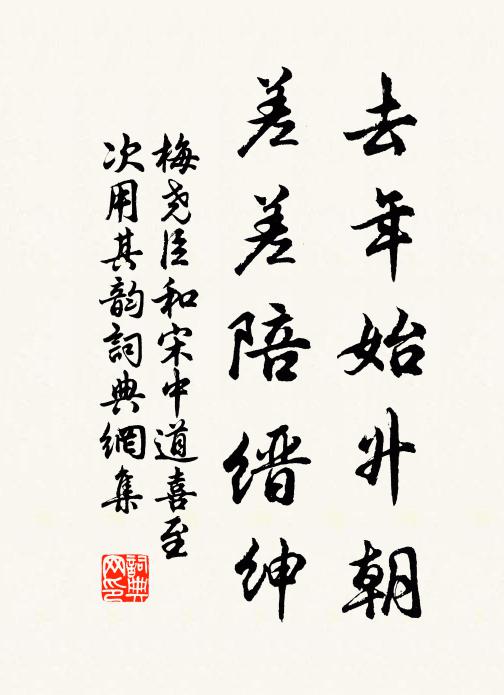 去年始升朝
差差陪缙绅
梅尧臣和宋中道喜至
次用其韵词典網集
詞典网印